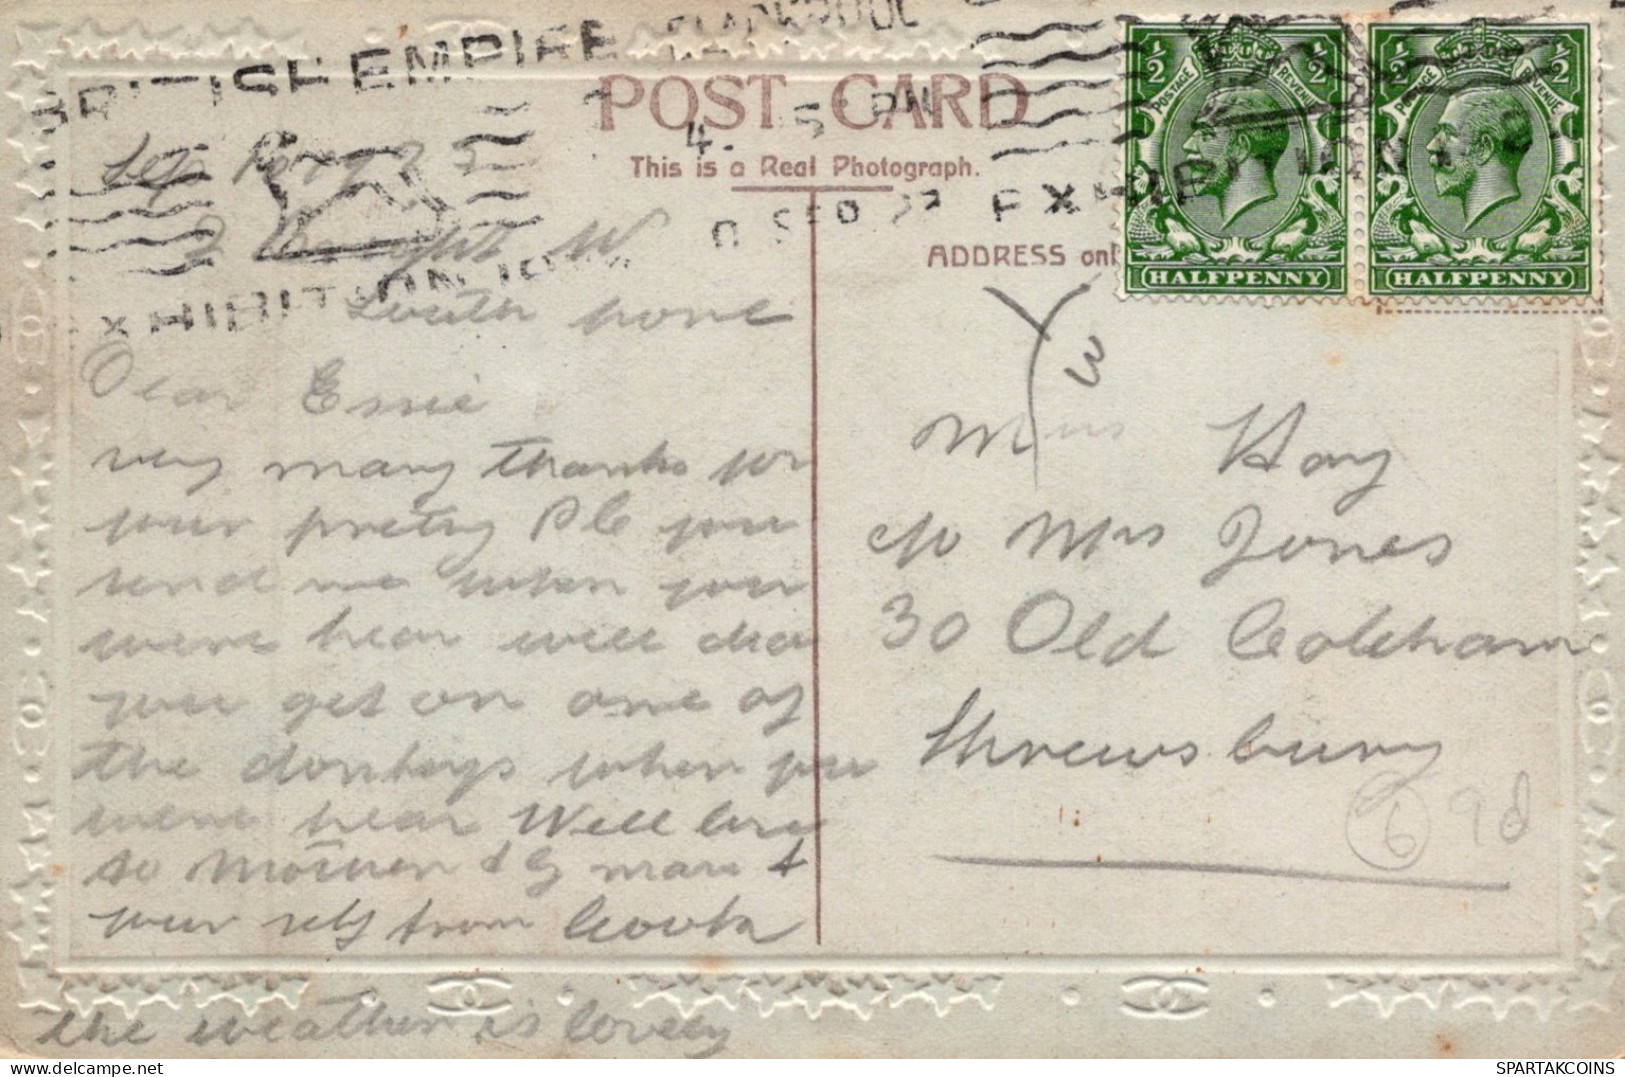 BRITISH EMPIRE
EXHIBITION
BLACKPOOL
4. 5 PM
SEP 23
EXHIBITION
POST CARD
This is a Real Photograph.
ADDRESS onl
½ ½
POSTAGE REVENUE
HALFPENNY
½ ½
POSTAGE REVENUE
HALFPENNY
South
Dear Essie
very many thanks for
your pretty P C you
send me when you
were hear well did
you get on one of
the donkeys when you
were hear Well
so Mother & G mar &
your self from
the weather is lovely
3
Hay
c/o Mrs Jones
30 Old Coleham
Shrewsbury
6 9d
SPARTAKCOINS